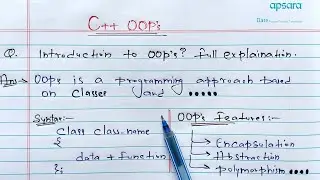 apsara
Date
C++ OOP's
Q. Introduction to OOP's? full explaination.
Ans → OOPs is a programming approach based
on Classes and .....
Syntax:-
class class-name
{
data + function
};
OOP's features:-
→ Encapsulation
→ Abstraction
→ polymorphism ....